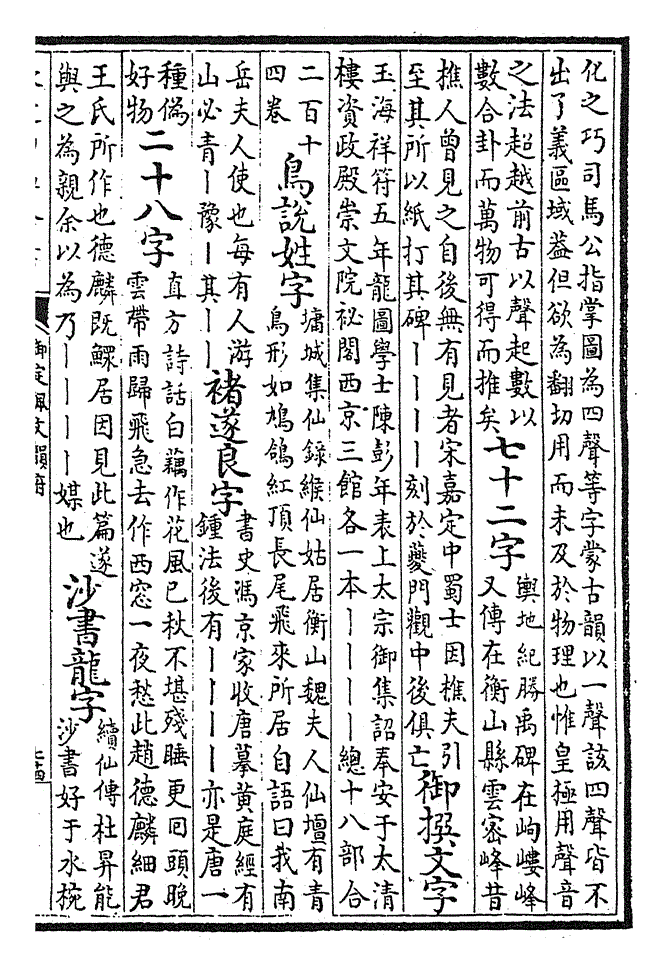 化之巧司馬公指掌圖為四聲等字蒙古韻以一聲該四聲皆不
出了義區域葢但欲為翻切用而未及於物理也惟皇極用聲音
之法超越前古以聲起數以
數合卦而萬物可得而推矣
七十二字
輿地紀勝禹碑在岣嶁峰
又傳在衡山縣雲密峰昔
樵人曾見之自後無有見者宋嘉定中蜀士因樵夫引
至其所以紙打其碑丨丨丨丨刻於夔門觀中後俱亡
御撰文字
玉海祥符五年龍圖學士陳彭年表上太宗御集詔奉安于太清
樓資政殿崇文院祕閣西京三館各一本丨丨丨丨總十八部合
二百十
四卷
鳥說姓字
墉城集仙錄緱仙姑居衡山魏夫人仙壇有青
鳥形如鳩鴿紅頂長尾飛來所居自語曰我南
岳夫人使也每有人游
山必青丨豫丨其丨丨
褚遂良字
書史馮京家收唐摹黃庭經有
鍾法後有丨丨丨丨亦是唐一
種偽
好物
二十八字
直方詩話白藕作花風已秋不堪殘睡更回頭晚
雲帶雨歸飛急去作西窓一夜愁此趙德麟細君
王氏所作也德麟既鰥居因見此篇遂
與之為親余以為乃丨丨丨丨媒也
沙書龍字
續仙傳杜昇能
沙書好于水椀
御定佩文韻府